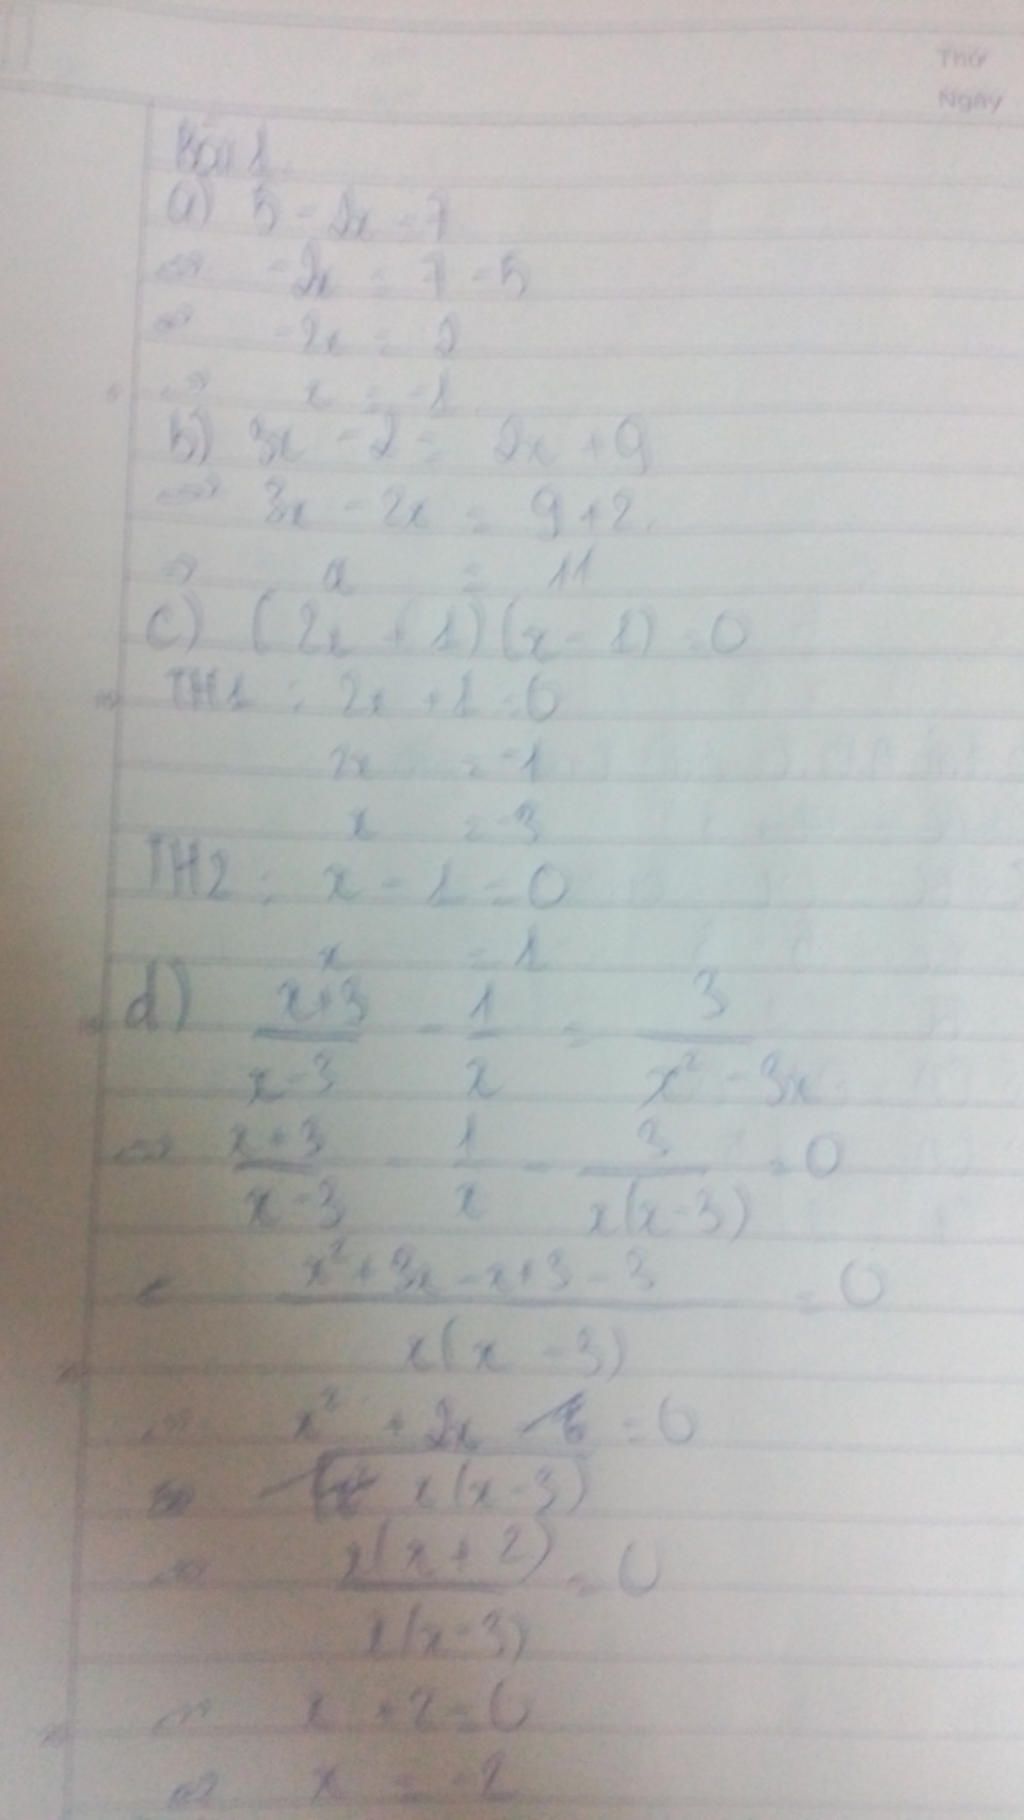 Thứ
Ngày
Bài 1
a) 5 - 2x = 7
⇔ -2x = 7 - 5
⇔ -2x = 2
⇔ x = -1
b) 3x - 2 = 2x + 9
⇔ 3x - 2x = 9 + 2
⇔ x = 11
c) (2x + 1)(x - 1) = 0
TH1 : 2x + 1 = 0
2x = -1
x = -3
TH2 : x - 1 = 0
x = 1
d) (x+3)/(x-3) - 1/x = 3/(x² - 3x)
⇔ (x+3)/(x-3) - 1/x - 3/(x(x-3)) = 0
(x² + 3x - x + 3 - 3)/(x(x - 3)) = 0
⇔ (x² + 2x)/(x(x-3)) = 0
⇔ x(x + 2)/(x(x-3)) = 0
⇔ x + 2 = 0
⇔ x = -2